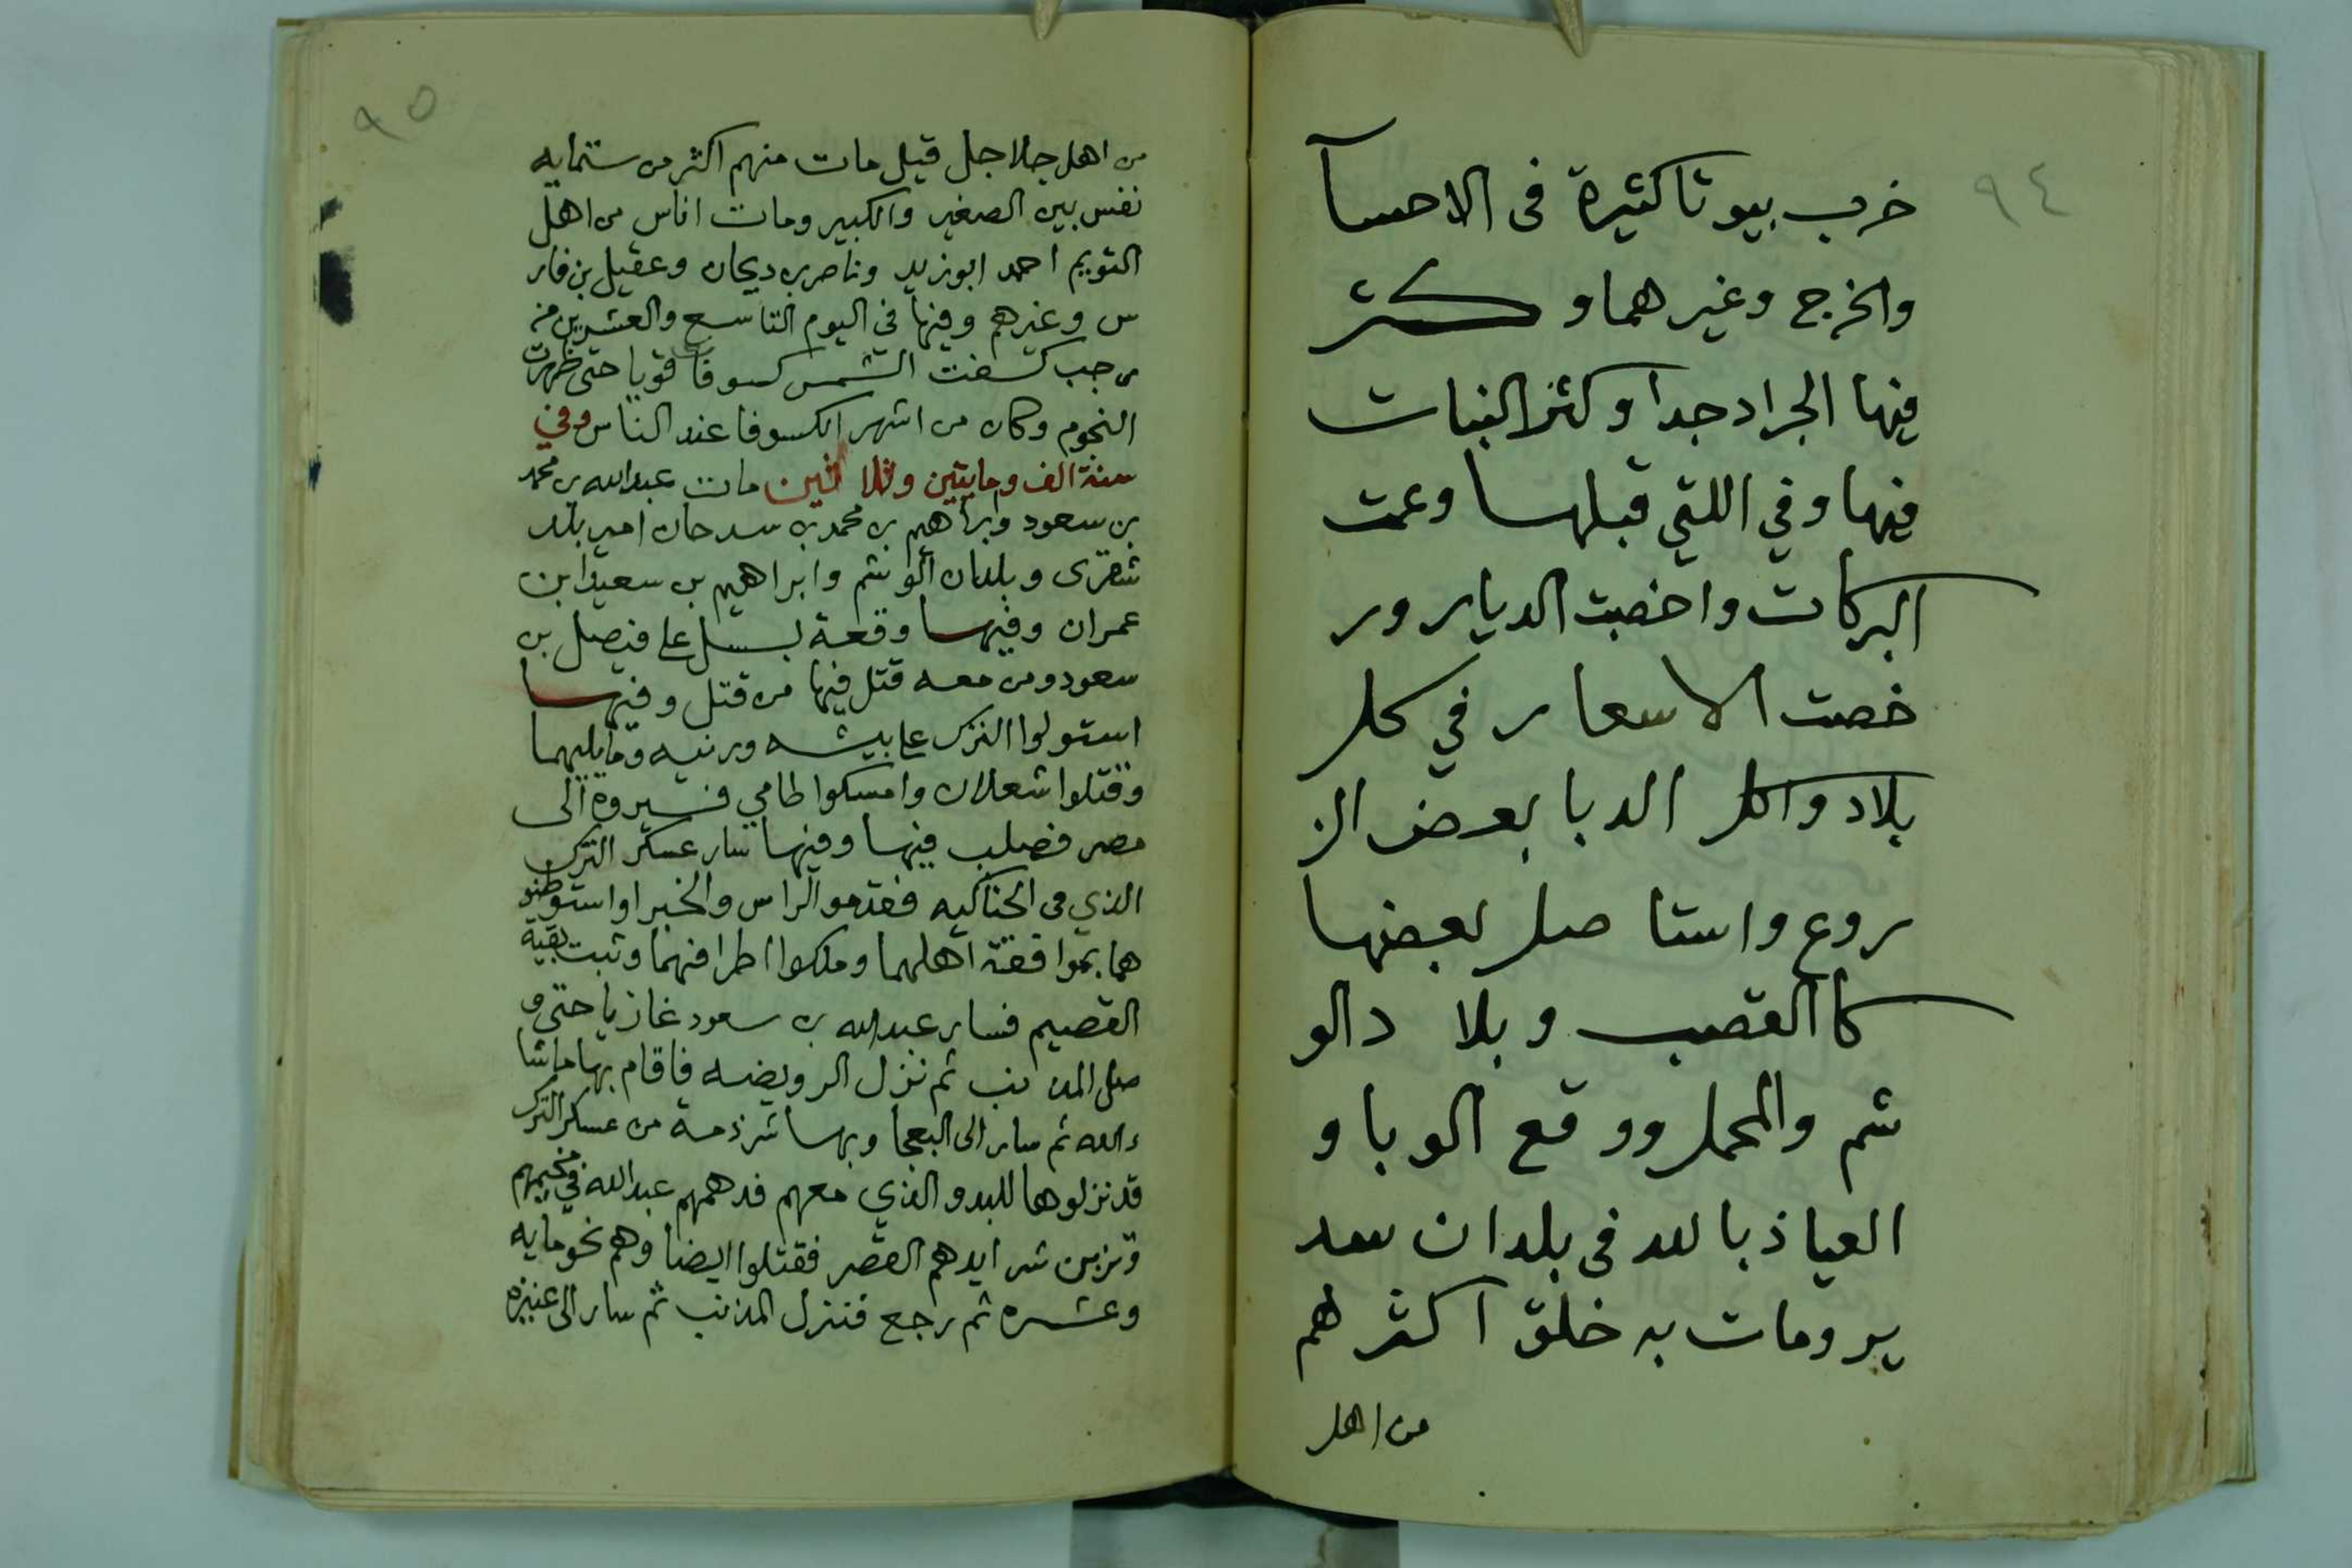 ٩٤
خرب بيوتا كثيرة فى الاحسآ
والخرج وغيرهما وكثر
فيها الجراد جدا وكثر النبات
فيها وفي اللتي قبلها وعمت
البركات واخصبت الديار ور
خصت الاسعار في كل
بلاد واكل الدبا بعض الز
روع واستا صل بعضها
كا القصب وبلا دالو
شم والمحمل ووقع الوبا و
العياذ بالله فى بلدان سد
ير ومات به خلق اكثرهم
من اهل
٩٥
من اهل جلاجل قيل مات منهم اكثر من ستمايه
نفس بين الصغير والكبير ومات اناس من اهل
التويم احمد ابوزيد وناصر بن ديحان وعقيل بن فار
س وغيرهم وفيها في اليوم التاسع والعشرين من
رجب كسفت الشمس كسوفا قويا حتى ظهرت
النجوم وكان من اشهر الكسوفا عند الناس وفي
سنة الف ومايتين وثلاثين مات عبدالله بن محمد
بن سعود وابراهيم بن محمد بن سدحان امير بلد
شقرى وبلدان الوشم وابراهيم بن سعيد ابن
عمران وفيها وقعة بسل على فيصل بن
سعود ومن معه قتل فيها من قتل وفيها
استولوا الترك على بيشه ورنيه وما يليهما
وقتلوا شعلان وامسكوا طامي فسيروه الى
مصر فصلب فيها وفيها سار عسكر الترك
الذي في الحناكيه فقدموا الراس والخبرا واستوطنو
هما بموافقة اهلهما وملكوا اطرافهما وثبت بقية
القصيم فسار عبدالله بن سعود غازيا حتى و
صل المذنب ثم نزل الرويضه فاقام بها ماشا
ء الله ثم سار الى البعجا وبها شرذمة من عسكر الترك
قد نزلوها للبدو الذي معهم فدهمهم عبدالله في مخيمهم
وتزبن شرايدهم القصر فقتلوا ايضا وهم نحو مايه
وعشره ثم رجع فنزل المذنب ثم سار الى عنيزه